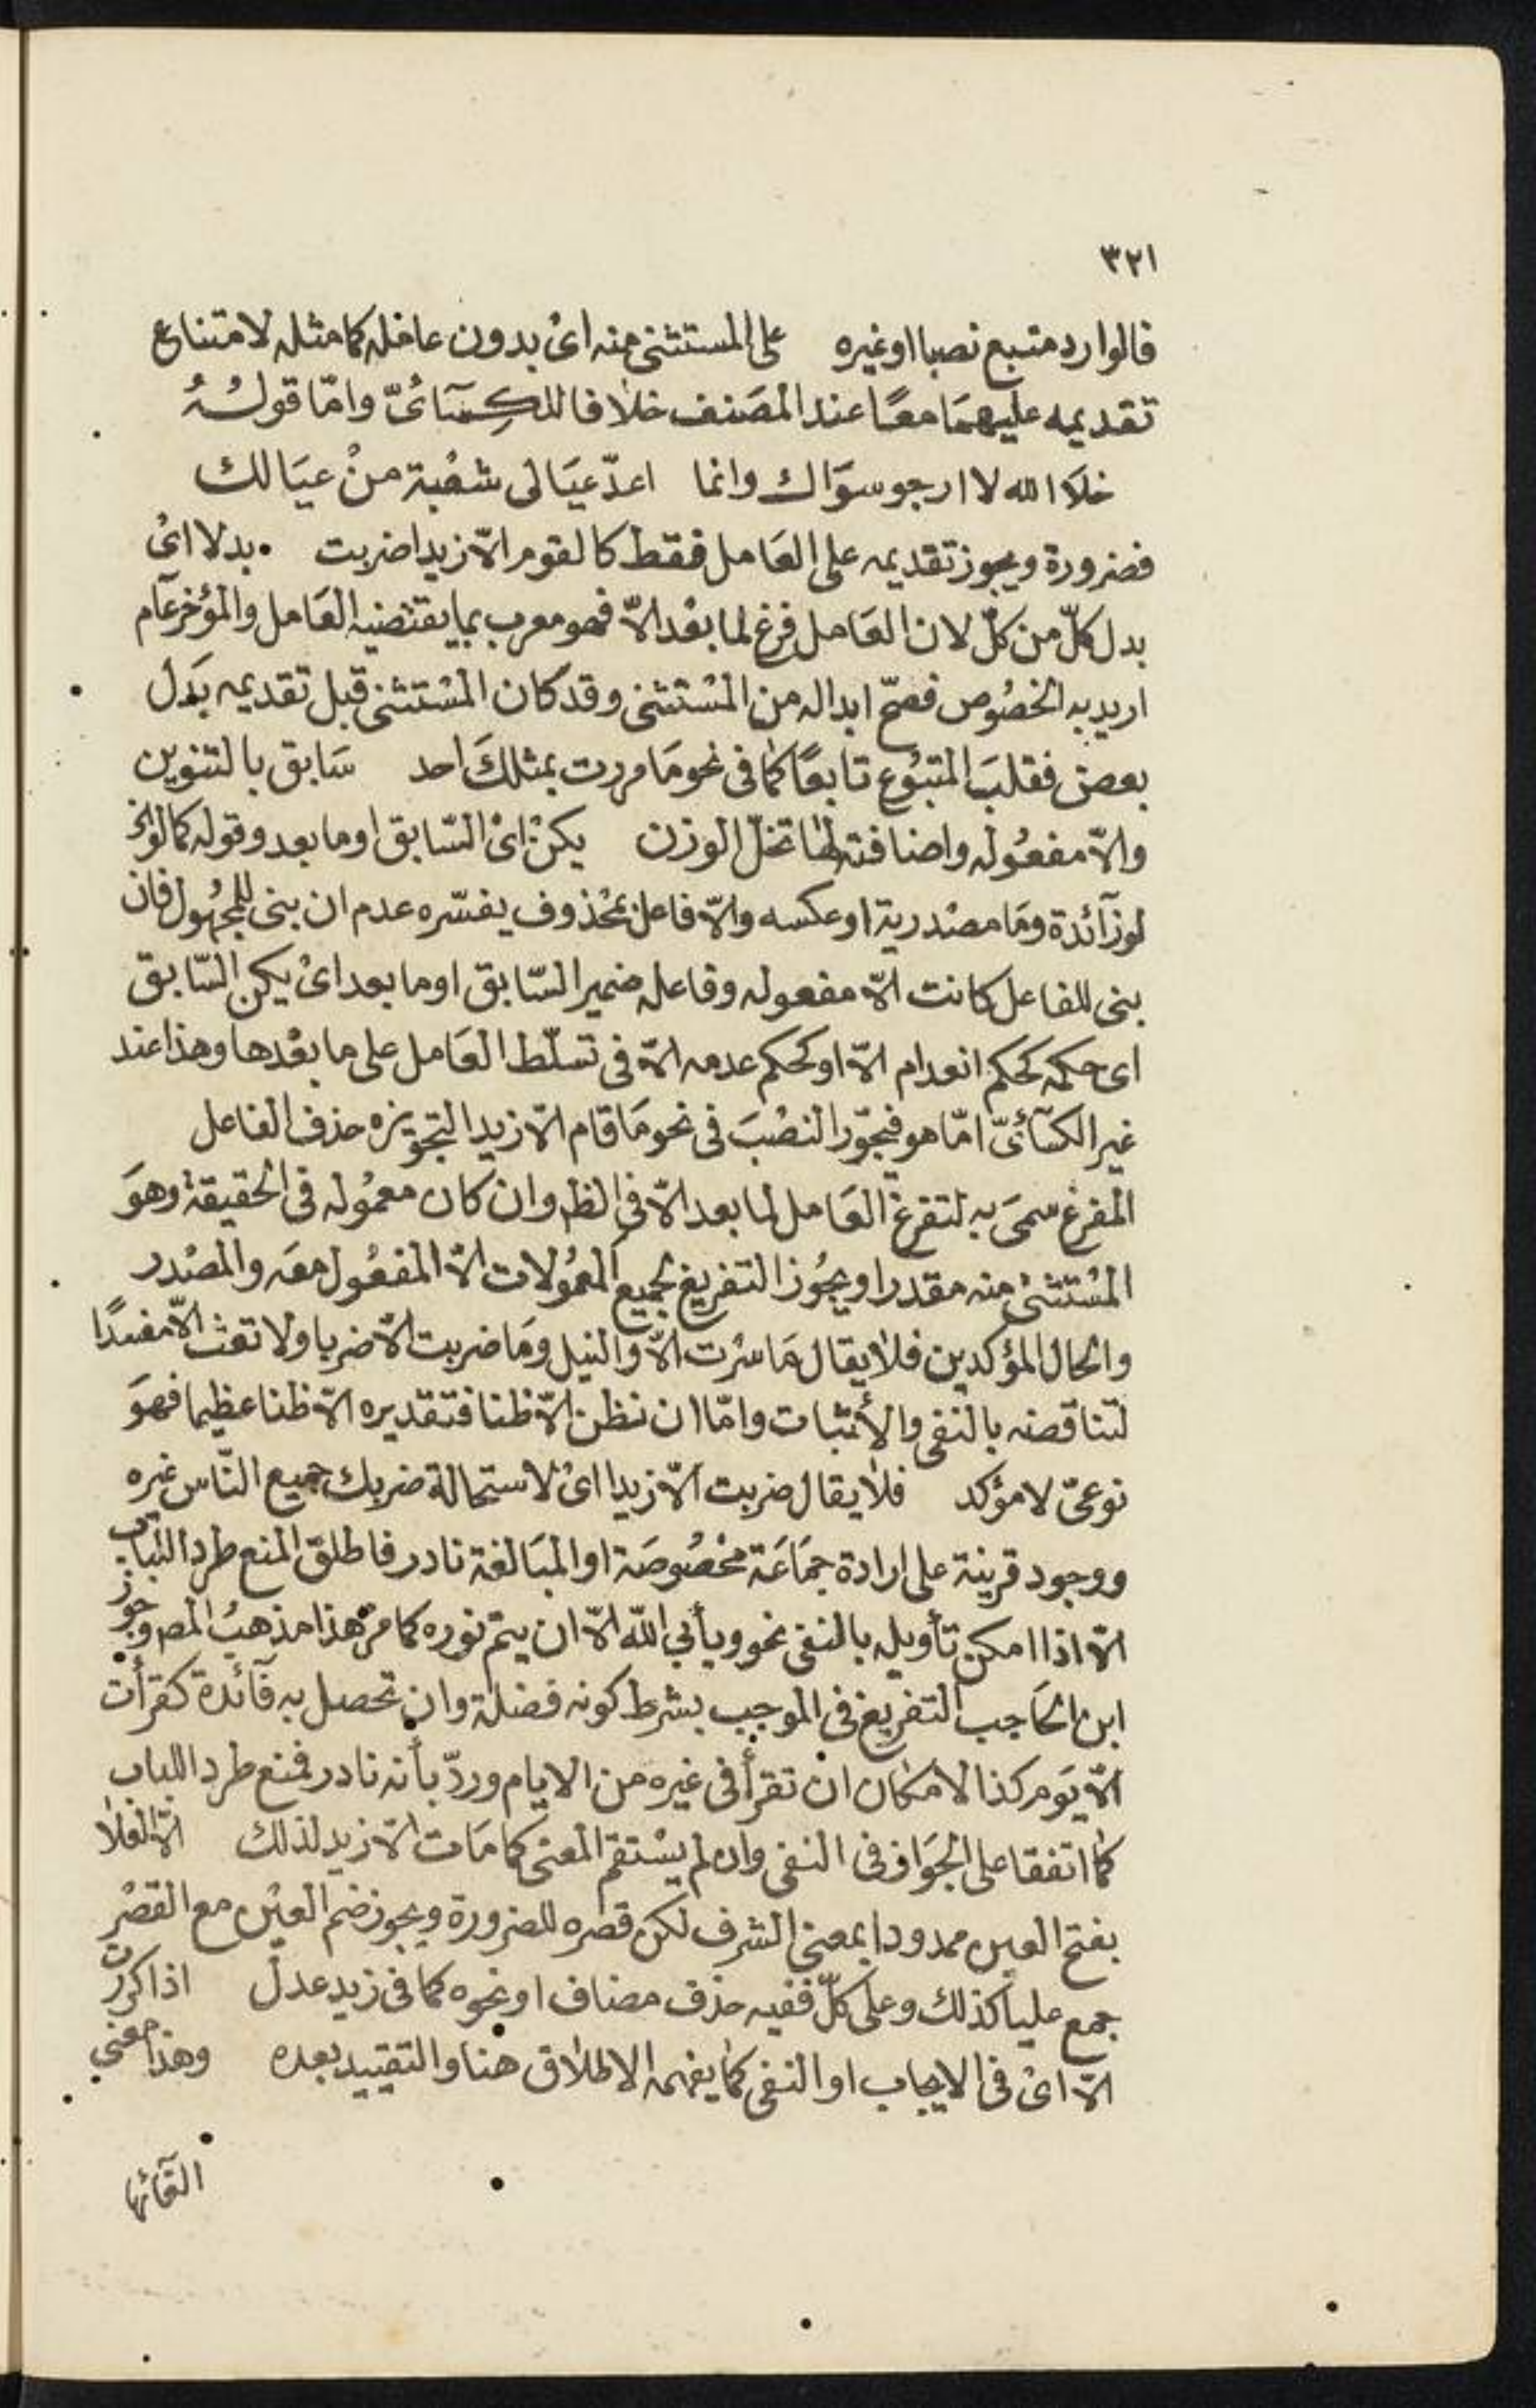 ٣٢١
فالوارد متبع نصبا او غيره على المستثنى منه اىْ بدون عامله كما مثله لامتناع
تقديمه عليهمَا معًا عند المصَنف خلافا للكِسَآئىّ وامّا قولُهُ
خلَا الله لا ارجو سوَاك وانما اعدّ عيَالى شعْبة منْ عيَالك
فضرورة ويجوز تقديمه على العَامل فقط كالقوم الّا زيدا ضربت بدلا اىْ
بدل كلّ من كلّ لان العَامل فرغ لما بعْد الّا فهو معرب بما يقتضيه العَامل والمؤخر عَام
اريد به الخصُوص فصحّ ابداله من المسْتثنى وقد كان المسْتثنى قبل تقديمه بدَل
بعض فقلبَ المتبُوع تابعًا كما فى نحو مَا مررت بمثلكَ احد سَابق بالتنوين
والّا مفعُوله واضافته لها تخلّ الوزن يكنْ اىْ السّابق او ما بعد وقوله كما لو الّا
لو زآئدة ومَا مصْدرية او عكسه والّا فاعل بمحْذوف يفسّره عدم ان بنى للمجْهُول فان
بنى للفاعل كانت الّا مفعوله وفاعله ضمير السّابق او ما بعد اىْ يكن السّابق
اى حكمه كحكم انعدام الّا او كحكم عدمه الّا فى تسلّط العَامل على ما بعْدها وهذا عند
غير الكسَآئىّ امّا هو فيجوّز النصْبَ فى نحو مَا قام الّا زيدا لتجويزه حذف الفاعل
المفرغ سمىَ به لتفرغ العَامل لما بعد الّا فى الظ وان كان معمُوله فى الحقيقة وهوَ
المسْتثنىْ منه مقدرا ويجُوز التفريغ لجميع المعمُولات الّا المفعُول معَه والمصْدر
والحال المؤكدين فلا يقال مَا سرْت الّا والنيل ومَا ضربت الّا ضربا ولا تعث الّا مفسدًا
لتناقضه بالنفى والأثبات وامّا ان نظن الّا ظنا فتقديره الّا ظنا عظيما فهوَ
نوعىّ لا مؤكد فلا يقال ضربت الّا زيدا اىْ لاستحالة ضربك جميع النّاس غيره
ووجود قرينة على ارادة جمَاعَة مخصُوصَة او المبَالغة نادر فاطلق المنع طردا للباب
الّا اذا امكن تأويله بالنفى نحو ويأبى اللّه الّا ان يتم نوره كما مرّ هذا مذهبُ المص وجوز
ابن الحَاجب التفريغ فى الموجب بشرط كونه فضلة وان تحصل به فآئدة كقرأت
الّا يوَم كذا لامكان ان تقرأ فى غيره من الايام وردّ بأنه نادر فمنع طردا للباب
كما اتفقا على الجوَاز فى النفى وان لم يسْتقم المعنى كما مَات الّا زيد لذلك الّا العلا
بفتح العين ممدودا بمعنى الشرف لكن قصره للضرورة ويجوز ضم العيْن مع القصْر
جمع عليا كذلك وعلى كلّ ففيه حذف مضاف او نحوه كما فى زيد عدل اذا كررت
الّا اىْ فى الايجاب او النفى كما يفهمه الاطلاق هنا والتقييد بعده وهذا معنى
القآئها